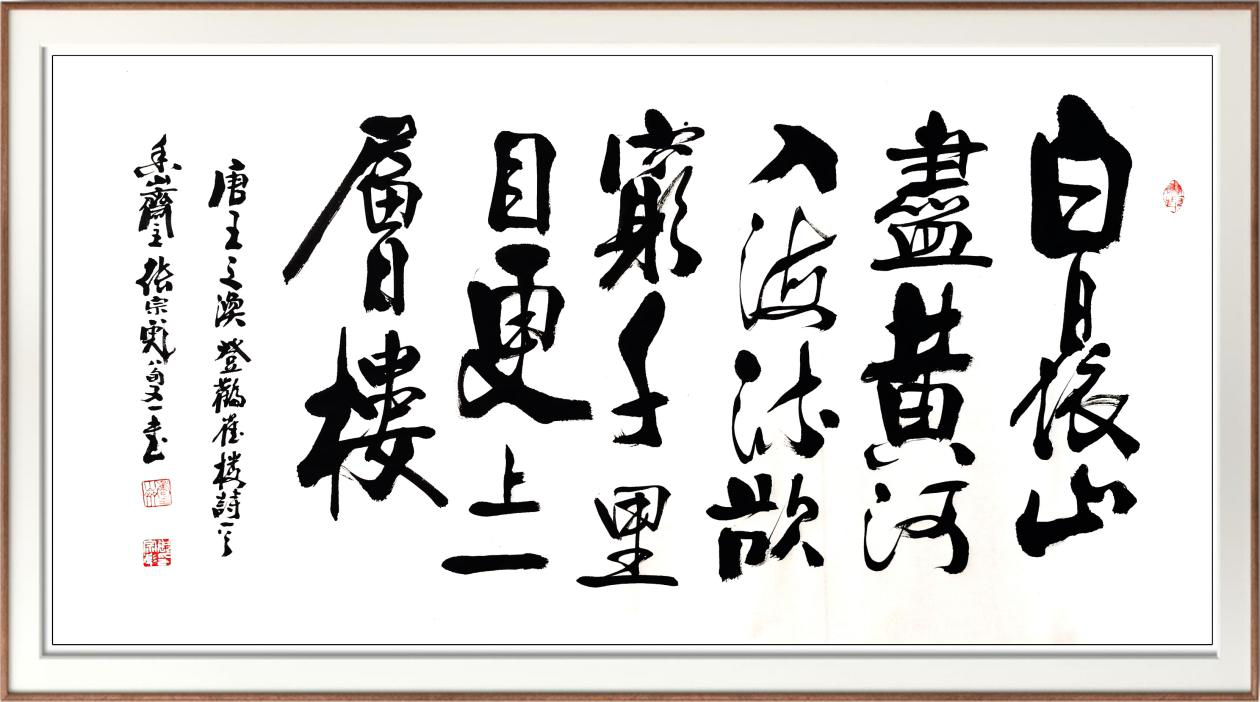 白日依山
盡黃河
入海流欲
窮千里
目更上一
層樓
唐王之渙登鸛雀樓詩一首
香山齋主張宗彪八旬又一書